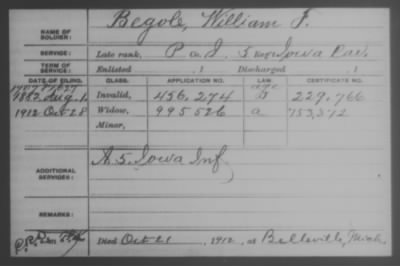 NAME OF SOLDIER: Begole, William F.
SERVICE: Late rank, P Co. I, 5 Reg't Iowa Cav.
TERM OF SERVICE: Enlisted , 1 Discharged , 1
DATE OF FILING. CLASS. APPLICATION NO. LAW. CERTIFICATE NO.
1882 Aug. 1. Invalid, 456,274 229,766
1912 Oct 28 Widow, 995526 a 753,372
Minor,
ADDITIONAL SERVICES: A 5. Iowa Inf.
REMARKS:
Died Oct. 21, 1912, at Belleville, Mich.